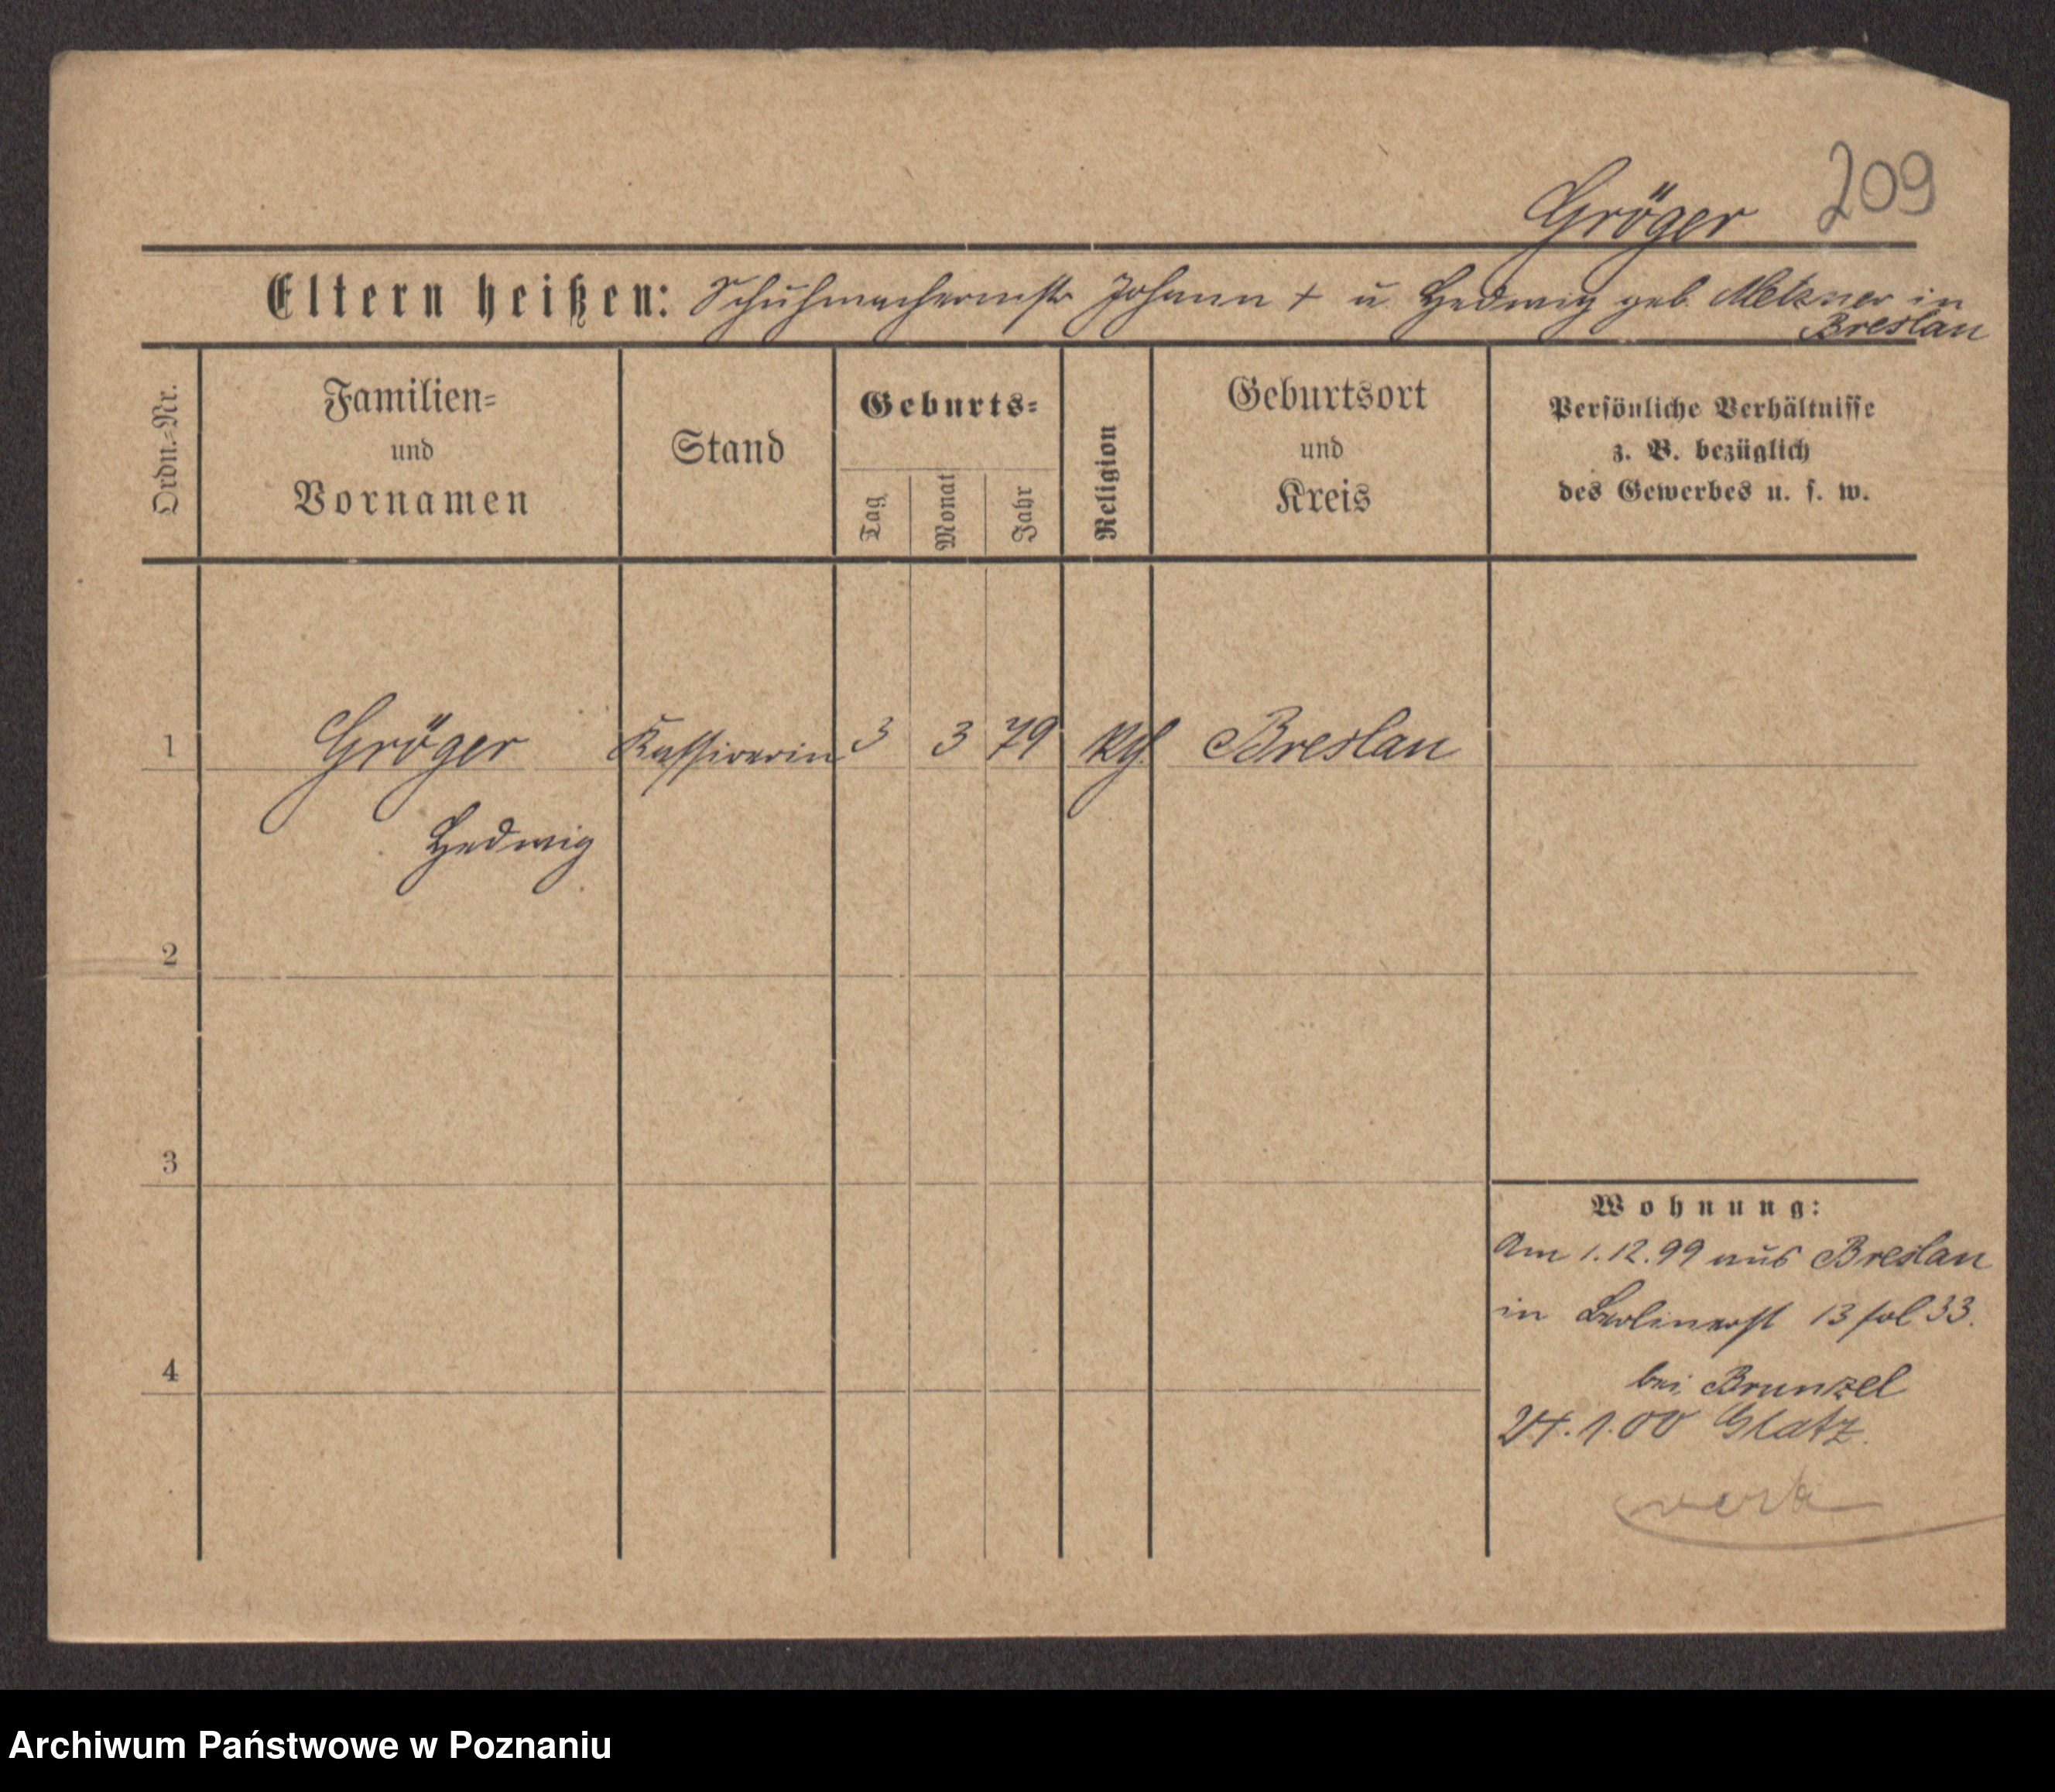 209
Gröger
Eltern heißen: Schuhmachermstr Johann + u. Hedwig geb. Metzner in
Breslau
Ordn.=Nr.
Familien=
und
Vornamen
Stand
Geburts=
Tag
Monat
Jahr
Religion
Geburtsort
und
Kreis
Persönliche Verhältnisse
z. B. bezüglich
des Gewerbes u. s. w.
1 Gröger Kassirerin 3 3 79 Breslau
Hedwig
2
3
4
Wohnung:
Am 1.12.99 aus Breslau
in Berlinerst 13 fol 33.
bei Brunzel
24.1.00 Glatz.
Archiwum Państwowe w Poznaniu